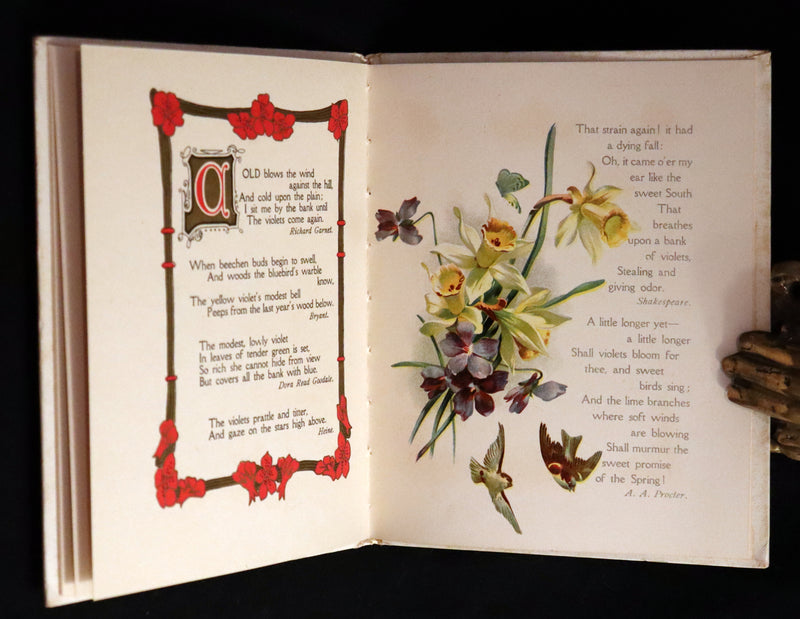 a
OLD blows the wind
against the hill,
And cold upon the plain;
I sit me by the bank until
The violets come again.
Richard Garnet.
When beechen buds begin to swell,
And woods the bluebird's warble
know,
The yellow violet's modest bell
Peeps from the last year's wood below.
Bryant.
The modest, lowly violet
In leaves of tender green is set,
So rich she cannot hide from view
But covers all the bank with blue.
Dora Read Goodale.
The violets prattle and titter,
And gaze on the stars high above.
Heine.
That strain again! it had
a dying fall:
Oh, it came o'er my
ear like the
sweet South
That
breathes
upon a bank
of violets,
Stealing and
giving odor.
Shakespeare.
A little longer yet—
a little longer
Shall violets bloom for
thee, and sweet
birds sing;
And the lime branches
where soft winds
are blowing
Shall murmur the
sweet promise
of the Spring!
A. A. Procter.